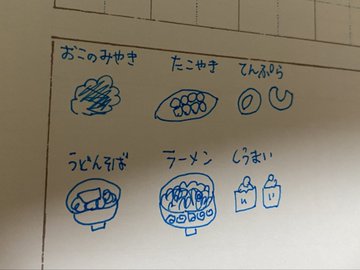 おこのみやき たこやき てんぷら
うどんそば ラーメン しうまい